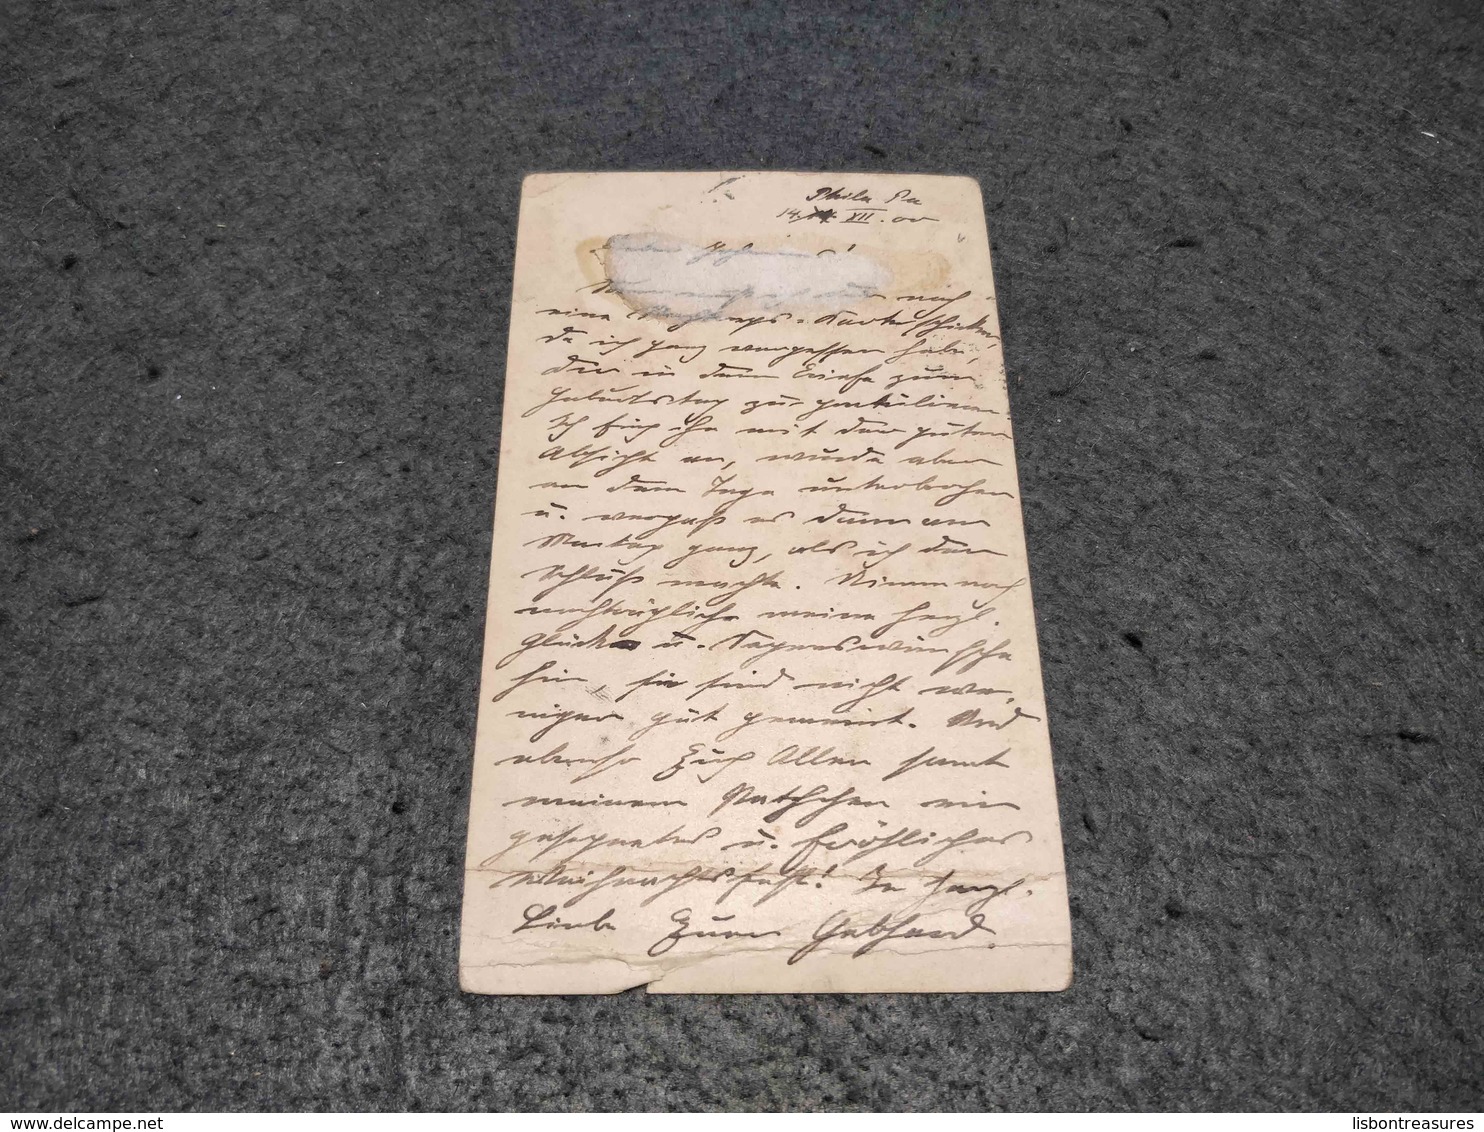 Phila Pa
14. XII. 00
noch
eine Karte schicken,
da ich ganz vergessen habe,
Dir in dem Briefe zum
Geburtstag zu gratulieren.
Ich fing ihn mit der guten
Absicht an, wurde aber
an dem Tage unterbrochen
u. vergaß es dann am
Montag ganz, als ich den
Schluß machte. Nimm noch
nachträglich meine herzl.
Glück u. Segenswünsche
hin, sie sind nicht we-
niger gut gemeint. Und
ebenso Euch Allen samt
meinem Patchen ein
gesegnetes u. fröhliches
Weihnachtsfest! In herzl.
Liebe Euer Gebhard.
lisbontreasures
delcampe.net